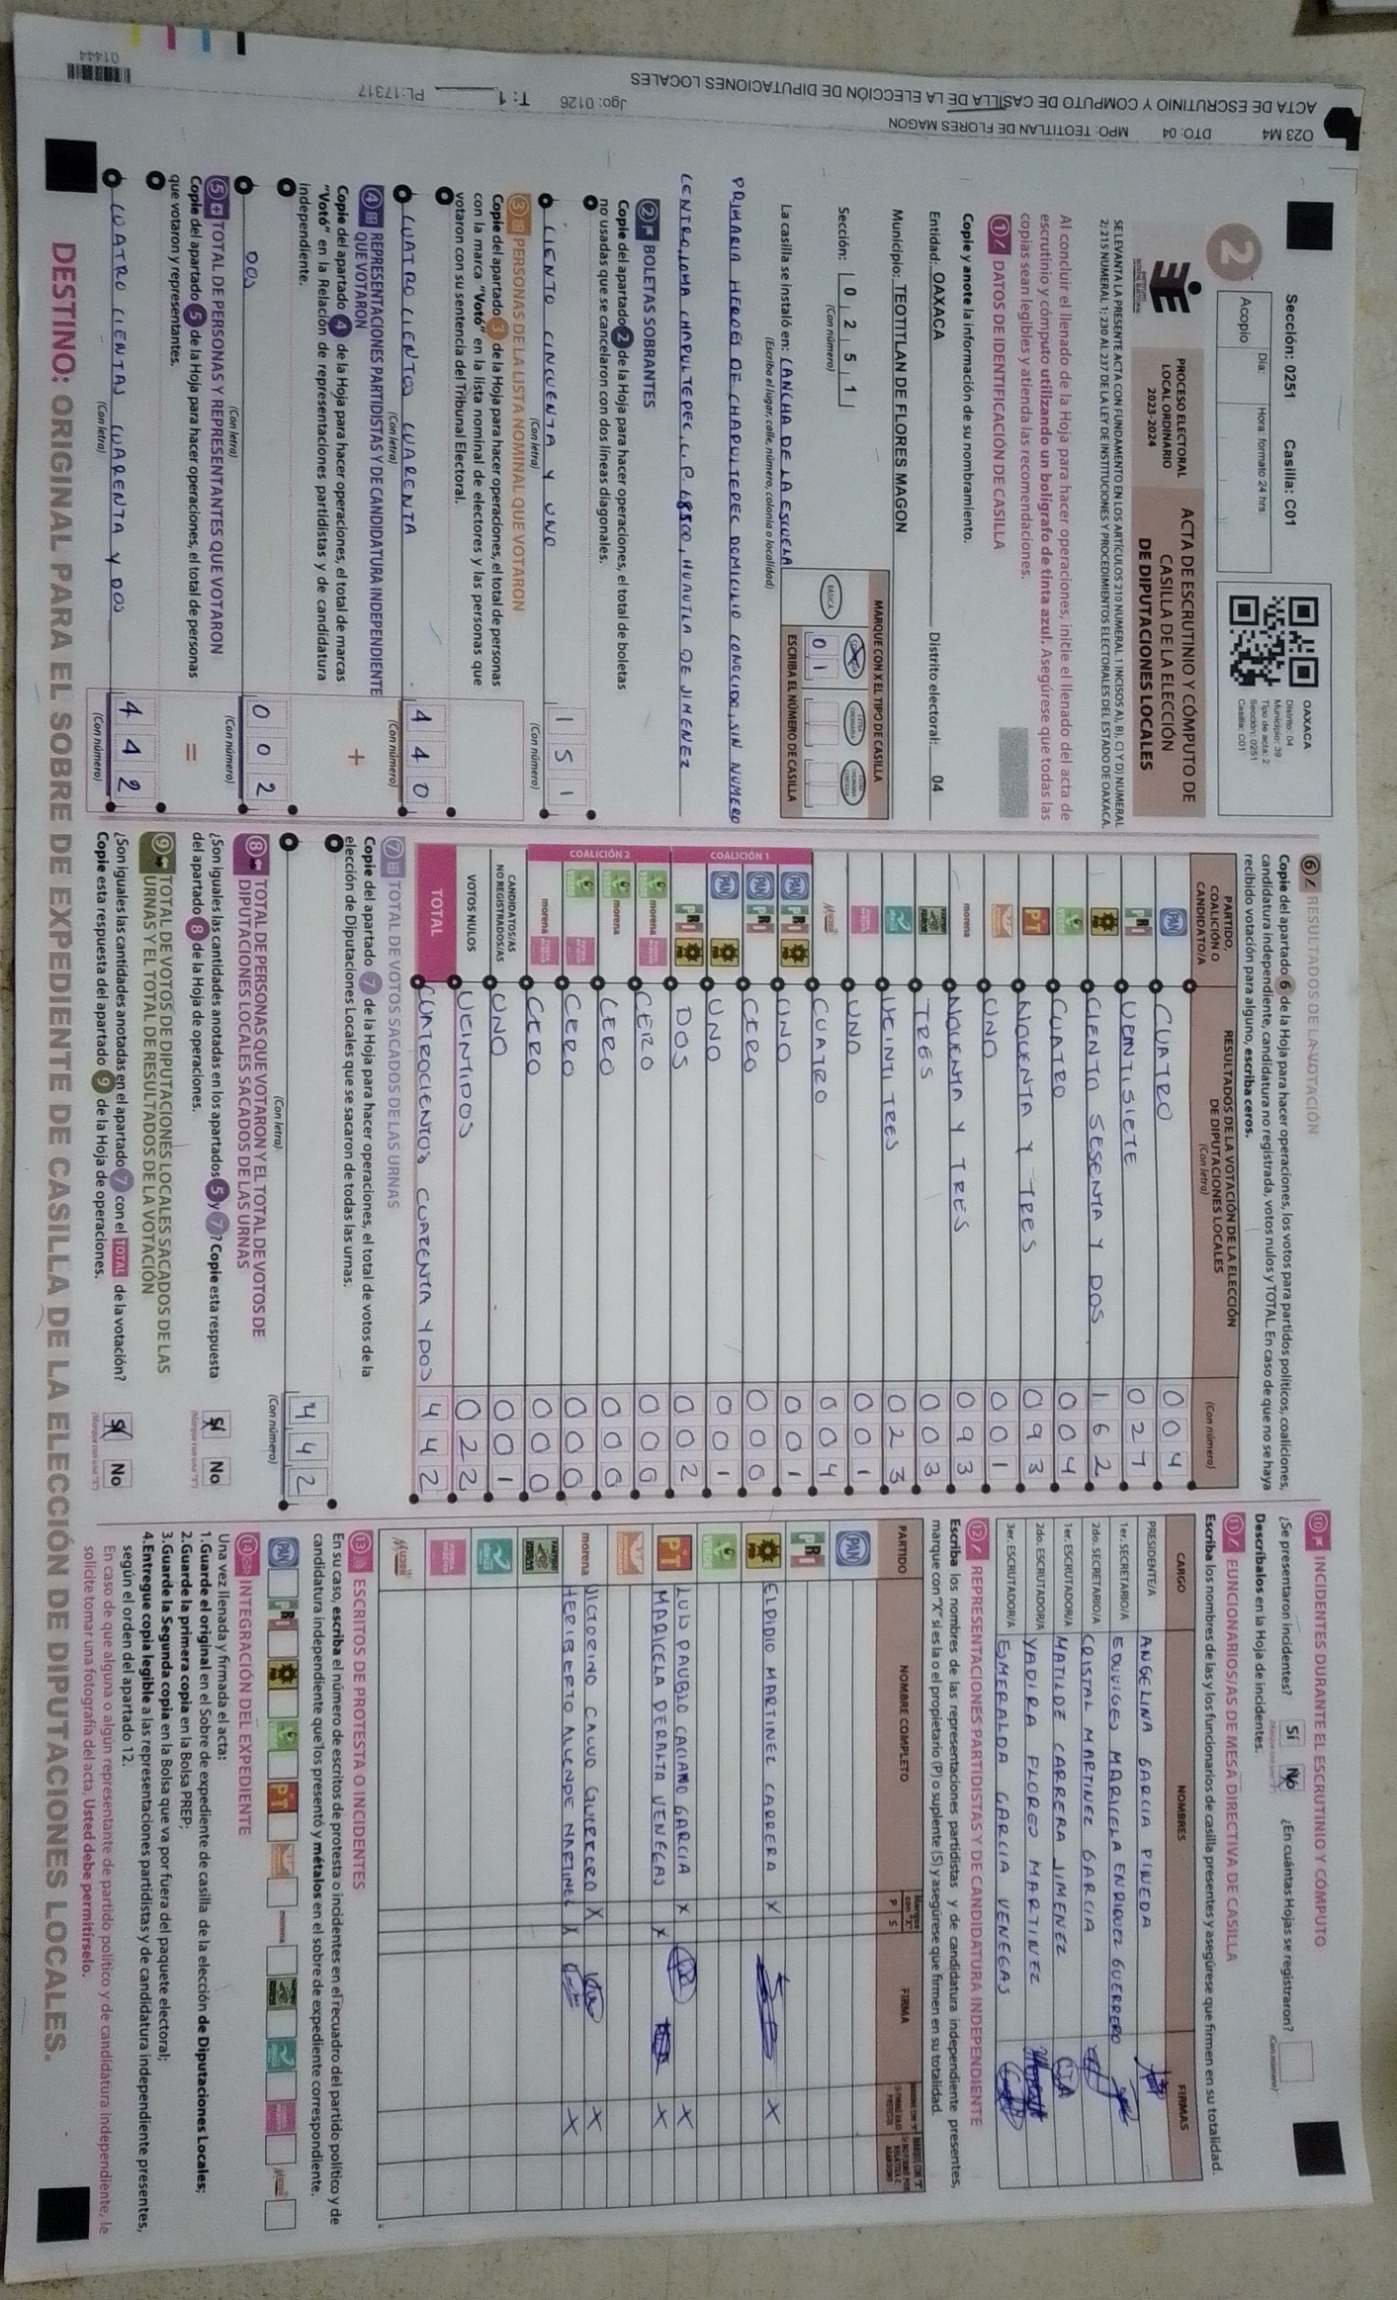 023 M4 DTO: 04 MPO: TEOTITLAN DE FLORES MAGON
ACTA DE ESCRUTINIO Y COMPUTO DE CASILLA DE LA ELECCIÓN DE DIPUTACIONES LOCALES
Jgo: 0126 T: 1 PL:17317
01444
Sección: 0251 Casilla: C01
2
Acopio
Día:
Hora: formato 24 hrs
OAXACA
Distrito: 04
Municipio: 39
Tipo de acta: 2
Sección: 0251
Casilla: C01
PROCESO ELECTORAL
LOCAL ORDINARIO
2023-2024
ACTA DE ESCRUTINIO Y CÓMPUTO DE
CASILLA DE LA ELECCIÓN
DE DIPUTACIONES LOCALES
SE LEVANTA LA PRESENTE ACTA CON FUNDAMENTO EN LOS ARTÍCULOS 210 NUMERAL 1 INCISOS A), B), C) Y D) NUMERAL
2; 215 NUMERAL 1; 230 AL 237 DE LA LEY DE INSTITUCIONES Y PROCEDIMIENTOS ELECTORALES DEL ESTADO DE OAXACA.
Al concluir el llenado de la Hoja para hacer operaciones, inicie el llenado del acta de
escrutinio y cómputo utilizando un bolígrafo de tinta azul. Asegúrese que todas las
copias sean legibles y atienda las recomendaciones.
1 DATOS DE IDENTIFICACIÓN DE CASILLA
Copie y anote la información de su nombramiento.
Entidad: OAXACA Distrito electoral: 04
Municipio: TEOTITLAN DE FLORES MAGON
Sección: 0 2 5 1
(Con número)
MARQUE CON X EL TIPO DE CASILLA
BÁSICA
0 1
ESCRIBA EL NÚMERO DE CASILLA
La casilla se instaló en: CANCHA DE LA ESCUELA
(Escriba el lugar, calle, número, colonia o localidad)
PRIMARIA HEROES DE CHAPULTEPEC DOMICILIO CONOCIDO, SIN NUMERO
CENTRO, LOMA CHAPULTEPEC, C.P. 68500, HUAUTLA DE JIMENEZ
2 BOLETAS SOBRANTES
Copie del apartado 2 de la Hoja para hacer operaciones, el total de boletas
no usadas que se cancelaron con dos líneas diagonales.
CIENTO CINCUENTA Y UNO 1 5 1
(Con letra) (Con número)
3 PERSONAS DE LA LISTA NOMINAL QUE VOTARON
Copie del apartado 3 de la Hoja para hacer operaciones, el total de personas
con la marca "Votó" en la lista nominal de electores y las personas que
votaron con su sentencia del Tribunal Electoral.
CUATRO CIENTOS CUARENTA 4 4 0
(Con letra) (Con número)
4 REPRESENTACIONES PARTIDISTAS Y DE CANDIDATURA INDEPENDIENTE
QUE VOTARON
+
Copie del apartado 4 de la Hoja para hacer operaciones, el total de marcas
"Votó" en la Relación de representaciones partidistas y de candidatura
independiente.
DOS 0 0 2
(Con letra) (Con número)
5 TOTAL DE PERSONAS Y REPRESENTANTES QUE VOTARON
=
Copie del apartado 5 de la Hoja para hacer operaciones, el total de personas
que votaron y representantes.
CUATRO CIENTAS CUARENTA Y DOS 4 4 2
(Con letra) (Con número)
6 RESULTADOS DE LA VOTACIÓN
Copie del apartado 6 de la Hoja para hacer operaciones, los votos para partidos políticos, coaliciones,
candidatura independiente, candidatura no registrada, votos nulos y TOTAL. En caso de que no se haya
recibido votación para alguno, escriba ceros.
PARTIDO, COALICIÓN O CANDIDATO/A
RESULTADOS DE LA VOTACIÓN DE LA ELECCIÓN DE DIPUTACIONES LOCALES
(Con letra) (Con número)
PAN CUATRO 0 0 4
PRI VEINTISIETE 0 2 7
PRD CIENTO SESENTA Y DOS 1 6 2
VERDE CUATRO 0 0 4
PT NOVENTA Y TRES 0 9 3
UNO 0 0 1
morena NOVENTA Y TRES 0 9 3
TRES 0 0 3
VEINTI TRES 0 2 3
UNO 0 0 1
CUATRO 0 0 4
COALICIÓN 1
PAN PRI PRD UNO 0 0 1
PAN PRI CERO 0 0 0
PAN PRD UNO 0 0 1
PRI PRD DOS 0 0 2
COALICIÓN 2
VERDE morena CERO 0 0 0
VERDE morena CERO 0 0 0
VERDE CERO 0 0 0
morena CERO 0 0 0
CANDIDATOS/AS NO REGISTRADOS/AS UNO 0 0 1
VOTOS NULOS VEINTIDOS 0 2 2
TOTAL CUATROCIENTOS CUARENTA Y DOS 4 4 2
7 TOTAL DE VOTOS SACADOS DE LAS URNAS
Copie del apartado 7 de la Hoja para hacer operaciones, el total de votos de la
elección de Diputaciones Locales que se sacaron de todas las urnas.
4 4 2
(Con letra) (Con número)
8 TOTAL DE PERSONAS QUE VOTARON Y EL TOTAL DE VOTOS DE
DIPUTACIONES LOCALES SACADOS DE LAS URNAS
¿Son iguales las cantidades anotadas en los apartados 5 y 7? Copie esta respuesta
del apartado 8 de la Hoja de operaciones.
Sí No
9 TOTAL DE VOTOS DE DIPUTACIONES LOCALES SACADOS DE LAS
URNAS Y EL TOTAL DE RESULTADOS DE LA VOTACIÓN
¿Son iguales las cantidades anotadas en el apartado 7 con el TOTAL de la votación?
Copie esta respuesta del apartado 9 de la Hoja de operaciones.
Sí No
10 INCIDENTES DURANTE EL ESCRUTINIO Y CÓMPUTO
¿Se presentaron incidentes? Sí No ¿En cuántas Hojas se registraron?
(Con número)
Descríbalos en la Hoja de incidentes.
11 FUNCIONARIOS/AS DE MESA DIRECTIVA DE CASILLA
Escriba los nombres de las y los funcionarios de casilla presentes y asegúrese que firmen en su totalidad.
CARGO NOMBRES FIRMAS
PRESIDENTE/A ANGELINA GARCIA PINEDA
1er. SECRETARIO/A EDUVIGES MARICELA ENRIQUEZ GUERRERO
2do. SECRETARIO/A CRISTAL MARTINEZ GARCIA
1er. ESCRUTADOR/A MATILDE CARRERA JIMENEZ
2do. ESCRUTADOR/A YADIRA FLORES MARTINEZ
3er. ESCRUTADOR/A ESMERALDA GARCIA VENEGAS
12 REPRESENTACIONES PARTIDISTAS Y DE CANDIDATURA INDEPENDIENTE
Escriba los nombres de las representaciones partidistas y de candidatura independiente presentes,
marque con "X" si es la o el propietario (P) o suplente (S) y asegúrese que firmen en su totalidad.
PARTIDO NOMBRE COMPLETO P S FIRMA
PAN
PRI
PRD ELPIDIO MARTINEZ CARRERA X X
VERDE
PT LUIS PAUBLO CACIANO GARCIA X X
MARICELA PERALTA VENEGAS X X
morena VICTORINO CALVO GUERRERO X X
HERIBERTO ALLENDE MARTINEZ X X
13 ESCRITOS DE PROTESTA O INCIDENTES
En su caso, escriba el número de escritos de protesta o incidentes en el recuadro del partido político y de
candidatura independiente que los presentó y métalos en el sobre de expediente correspondiente.
PAN PRI PRD VERDE PT morena
14 INTEGRACIÓN DEL EXPEDIENTE
Una vez llenada y firmada el acta:
1.Guarde el original en el Sobre de expediente de casilla de la elección de Diputaciones Locales;
2.Guarde la primera copia en la Bolsa PREP;
3.Guarde la Segunda copia en la Bolsa que va por fuera del paquete electoral;
4.Entregue copia legible a las representaciones partidistas y de candidatura independiente presentes,
según el orden del apartado 12.
En caso de que alguna o algún representante de partido político y de candidatura independiente, le
solicite tomar una fotografía del acta, Usted debe permitírselo.
DESTINO: ORIGINAL PARA EL SOBRE DE EXPEDIENTE DE CASILLA DE LA ELECCIÓN DE DIPUTACIONES LOCALES.